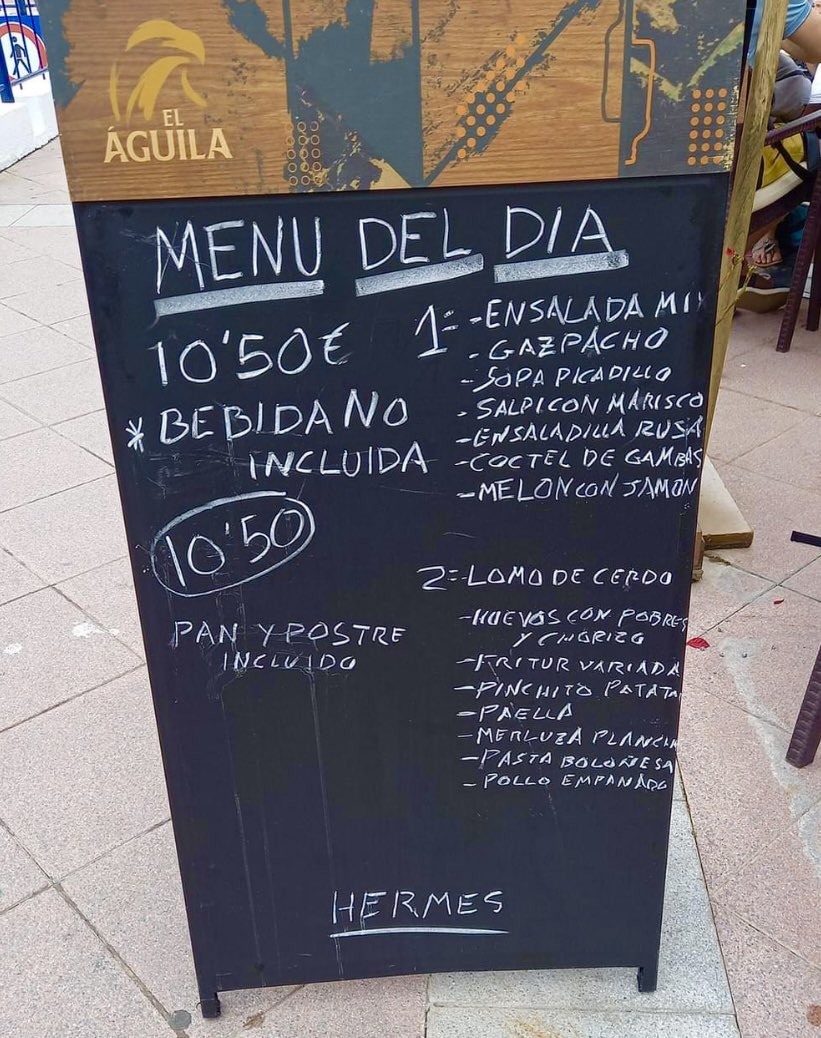 EL
ÁGUILA
MENU DEL DIA
10'50€
*BEBIDA NO
INCLUIDA
10'50
PAN Y POSTRE
INCLUIDO
1= -ENSALADA MIX
-GAZPACHO
-SOPA PICADILLO
-SALPICON MARISCO
-ENSALADILLA RUSA
-COCTEL DE GAMBAS
-MELON CON JAMON
2=-LOMO DE CERDO
-HUEVOS CON POBRES
Y CHORIZO
-FRITUR VARIADA
-PINCHITO PATATA
-PAELLA
-MERLUZA PLANCHA
-PASTA BOLOÑESA
-POLLO EMPANADO
HERMES